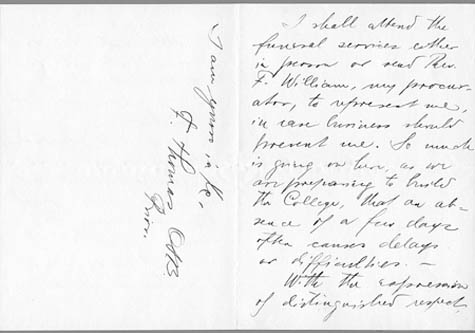 I shall attend the
funeral services either
in person or send Rev.
F. William, my procur-
ator, to represent me,
in case business should
prevent me. So much
is going on here, as we
are preparing to build
the College, that an ab-
sence of a few days
often causes delays
or difficulties. —
With the expression
of distinguished respect,
I am yours in
F. Thomas OSB.
Prior.